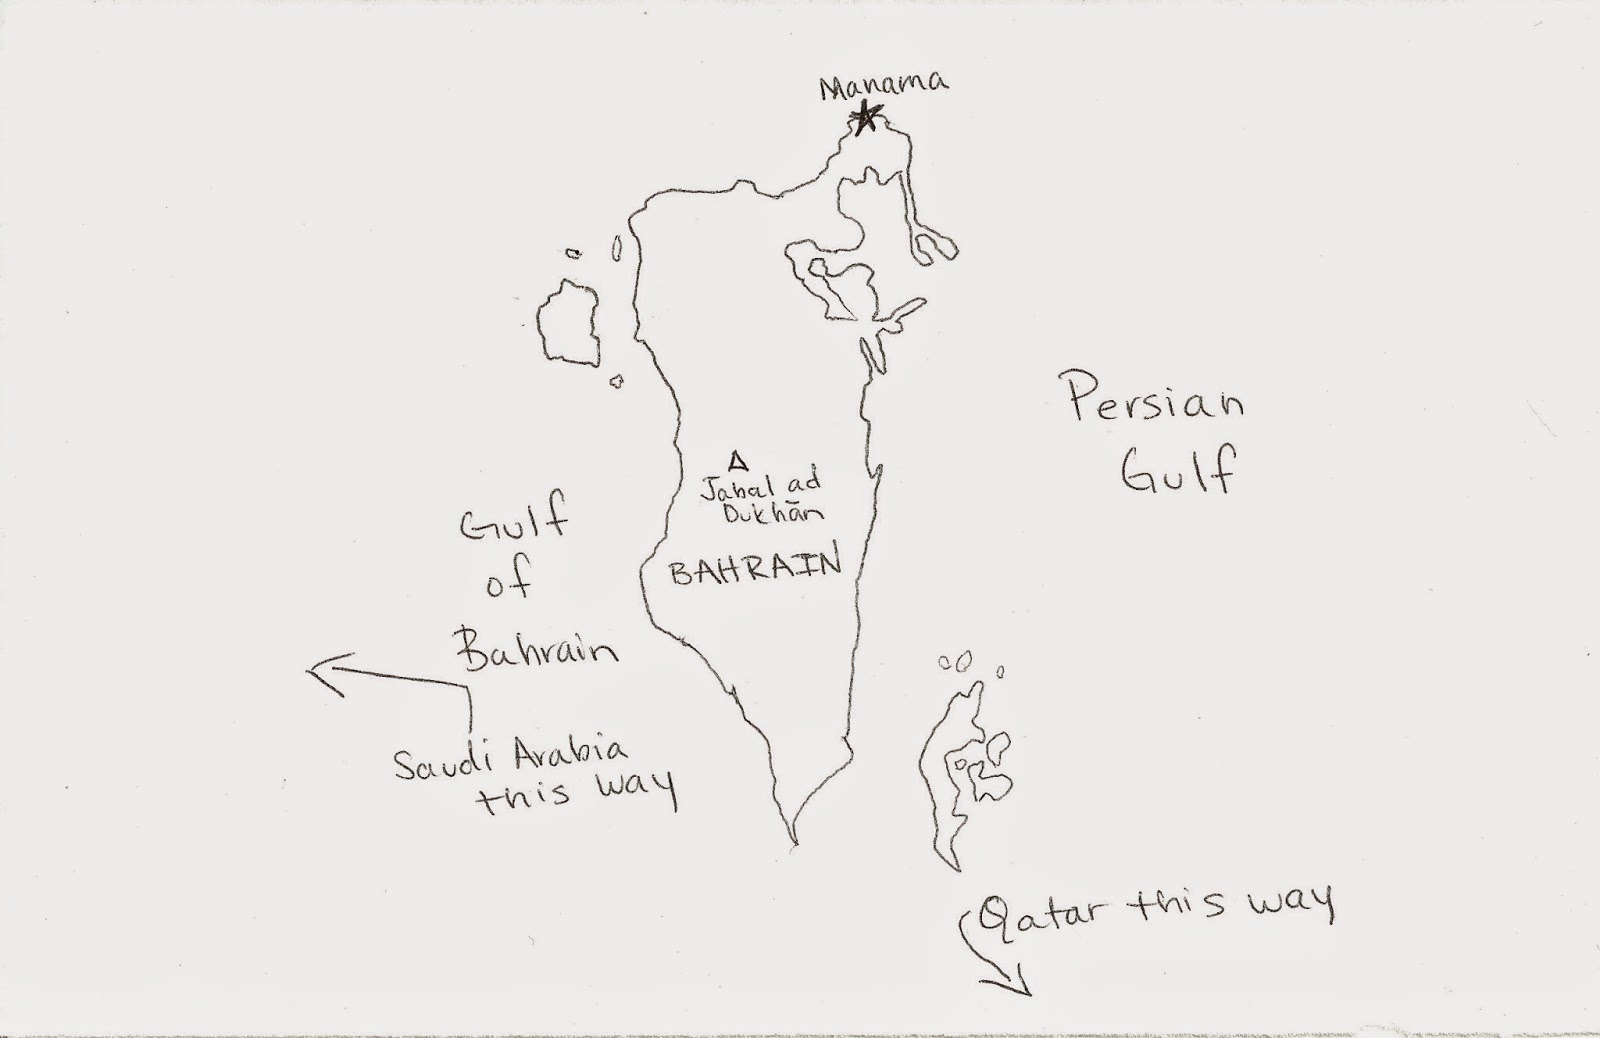 Manama
Persian
Gulf
Jabal ad
Dukhān
Gulf
of
BAHRAIN
Bahrain
Saudi Arabia
this way
Qatar this way